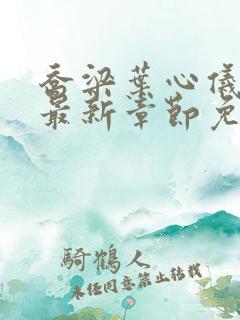 乔梁葉心儀
最新章節免
騎鶴人
未任同意禁止转载